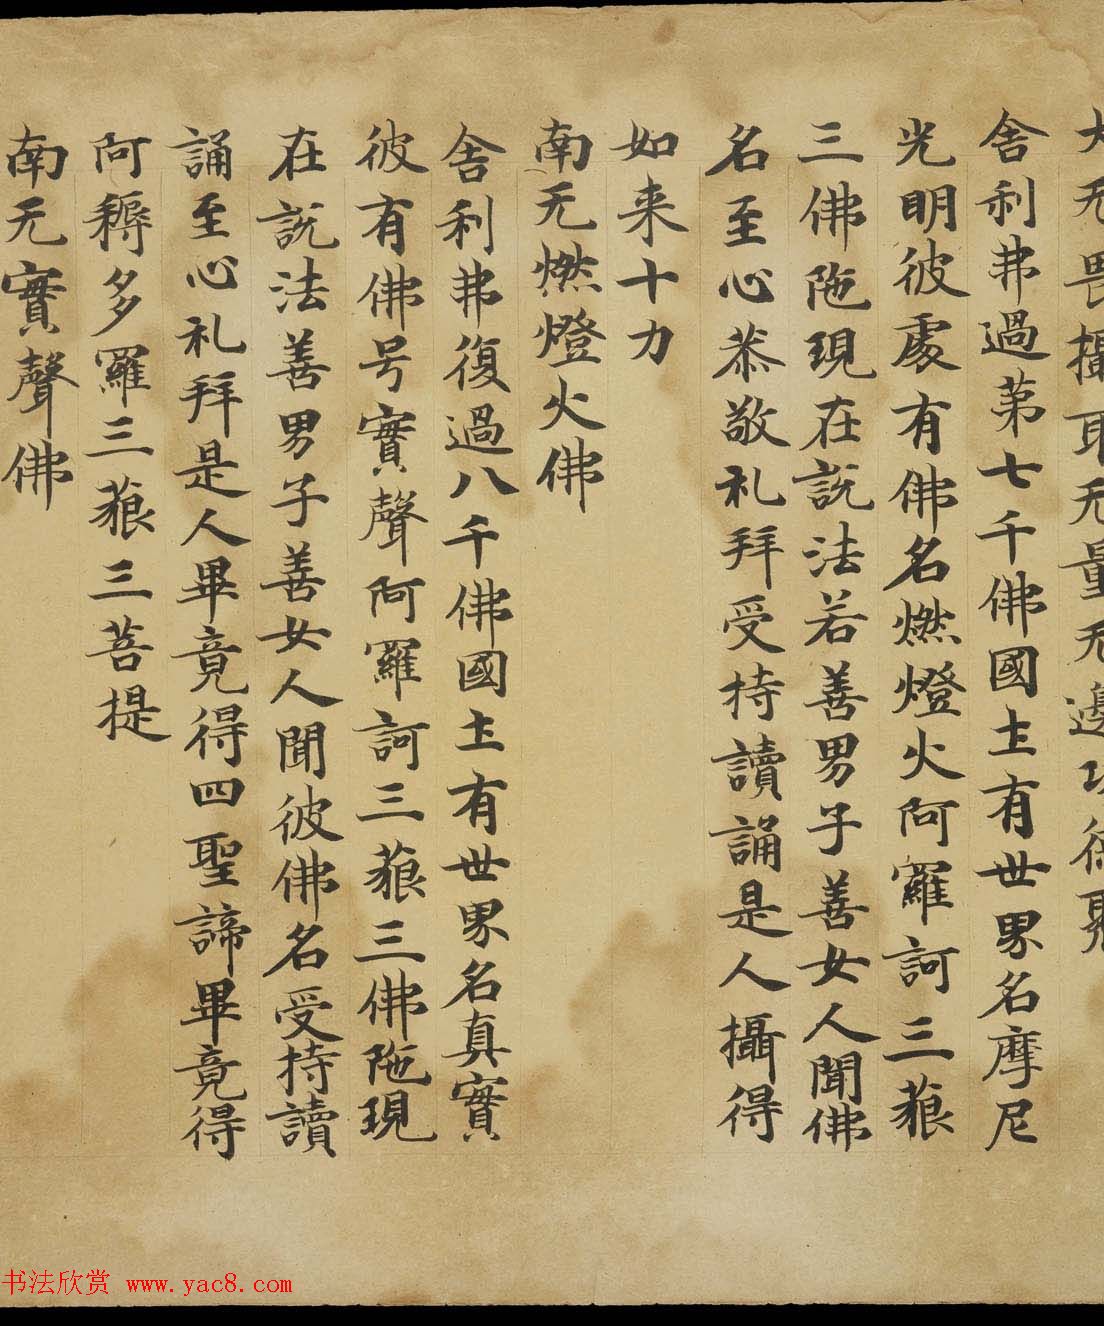 大无畏攝取无量无邊功德聚
舎利弗過第七千佛國土有世界名摩尼
光明彼處有佛名燃燈火阿羅訶三藐
三佛陁現在説法若善男子善女人聞佛
名至心恭敬礼拜受持讀誦是人攝得
如来十力
南无燃燈火佛
舎利弗復過八千佛國土有世界名真實
彼有佛号實聲阿羅訶三藐三佛陁現
在説法善男子善女人聞彼佛名受持讀
誦至心礼拜是人畢竟得四聖諦畢竟得
阿耨多羅三藐三菩提
南无實聲佛
书法欣赏 www.yac8.com